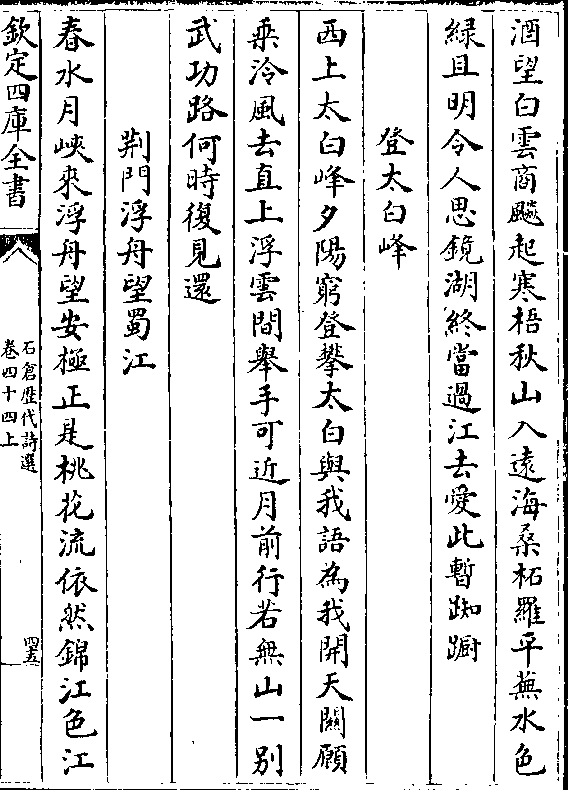 酒望白雲商飇起寒梧秋山入遠海桑柘羅平蕪水色
緑且明令人思鏡湖終當過江去愛此暫踟蹰
登太白峰
西上太白峰夕陽窮登攀太白與我語為我開天闗願
乗泠風去直上浮雲間舉手可近月前行若無山一别
武功路何時復見還
荆門浮舟望蜀江
春水月峽來浮舟望安極正是桃花流依然錦江色江
欽定四庫全書
石倉歴代詩選
卷四十四上
四五